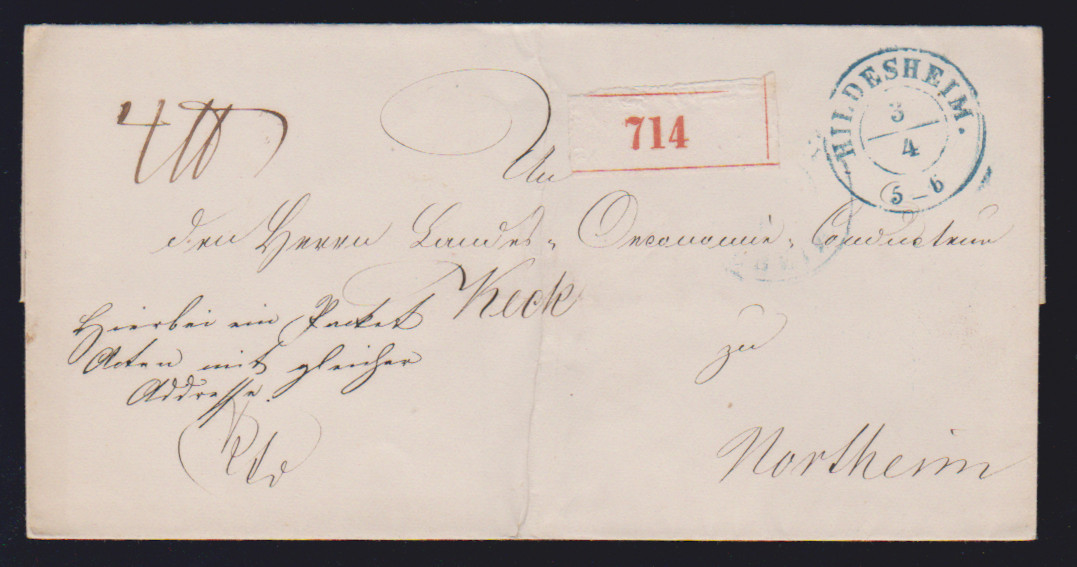 4 ℔
714
HILDESHEIM.
3
4
5-6
An
den Herrn Landes- Oeconomie- Conducteur
Keck
Hierbei ein Packet
Acten mit gleicher
Addresse.
zu
Northeim